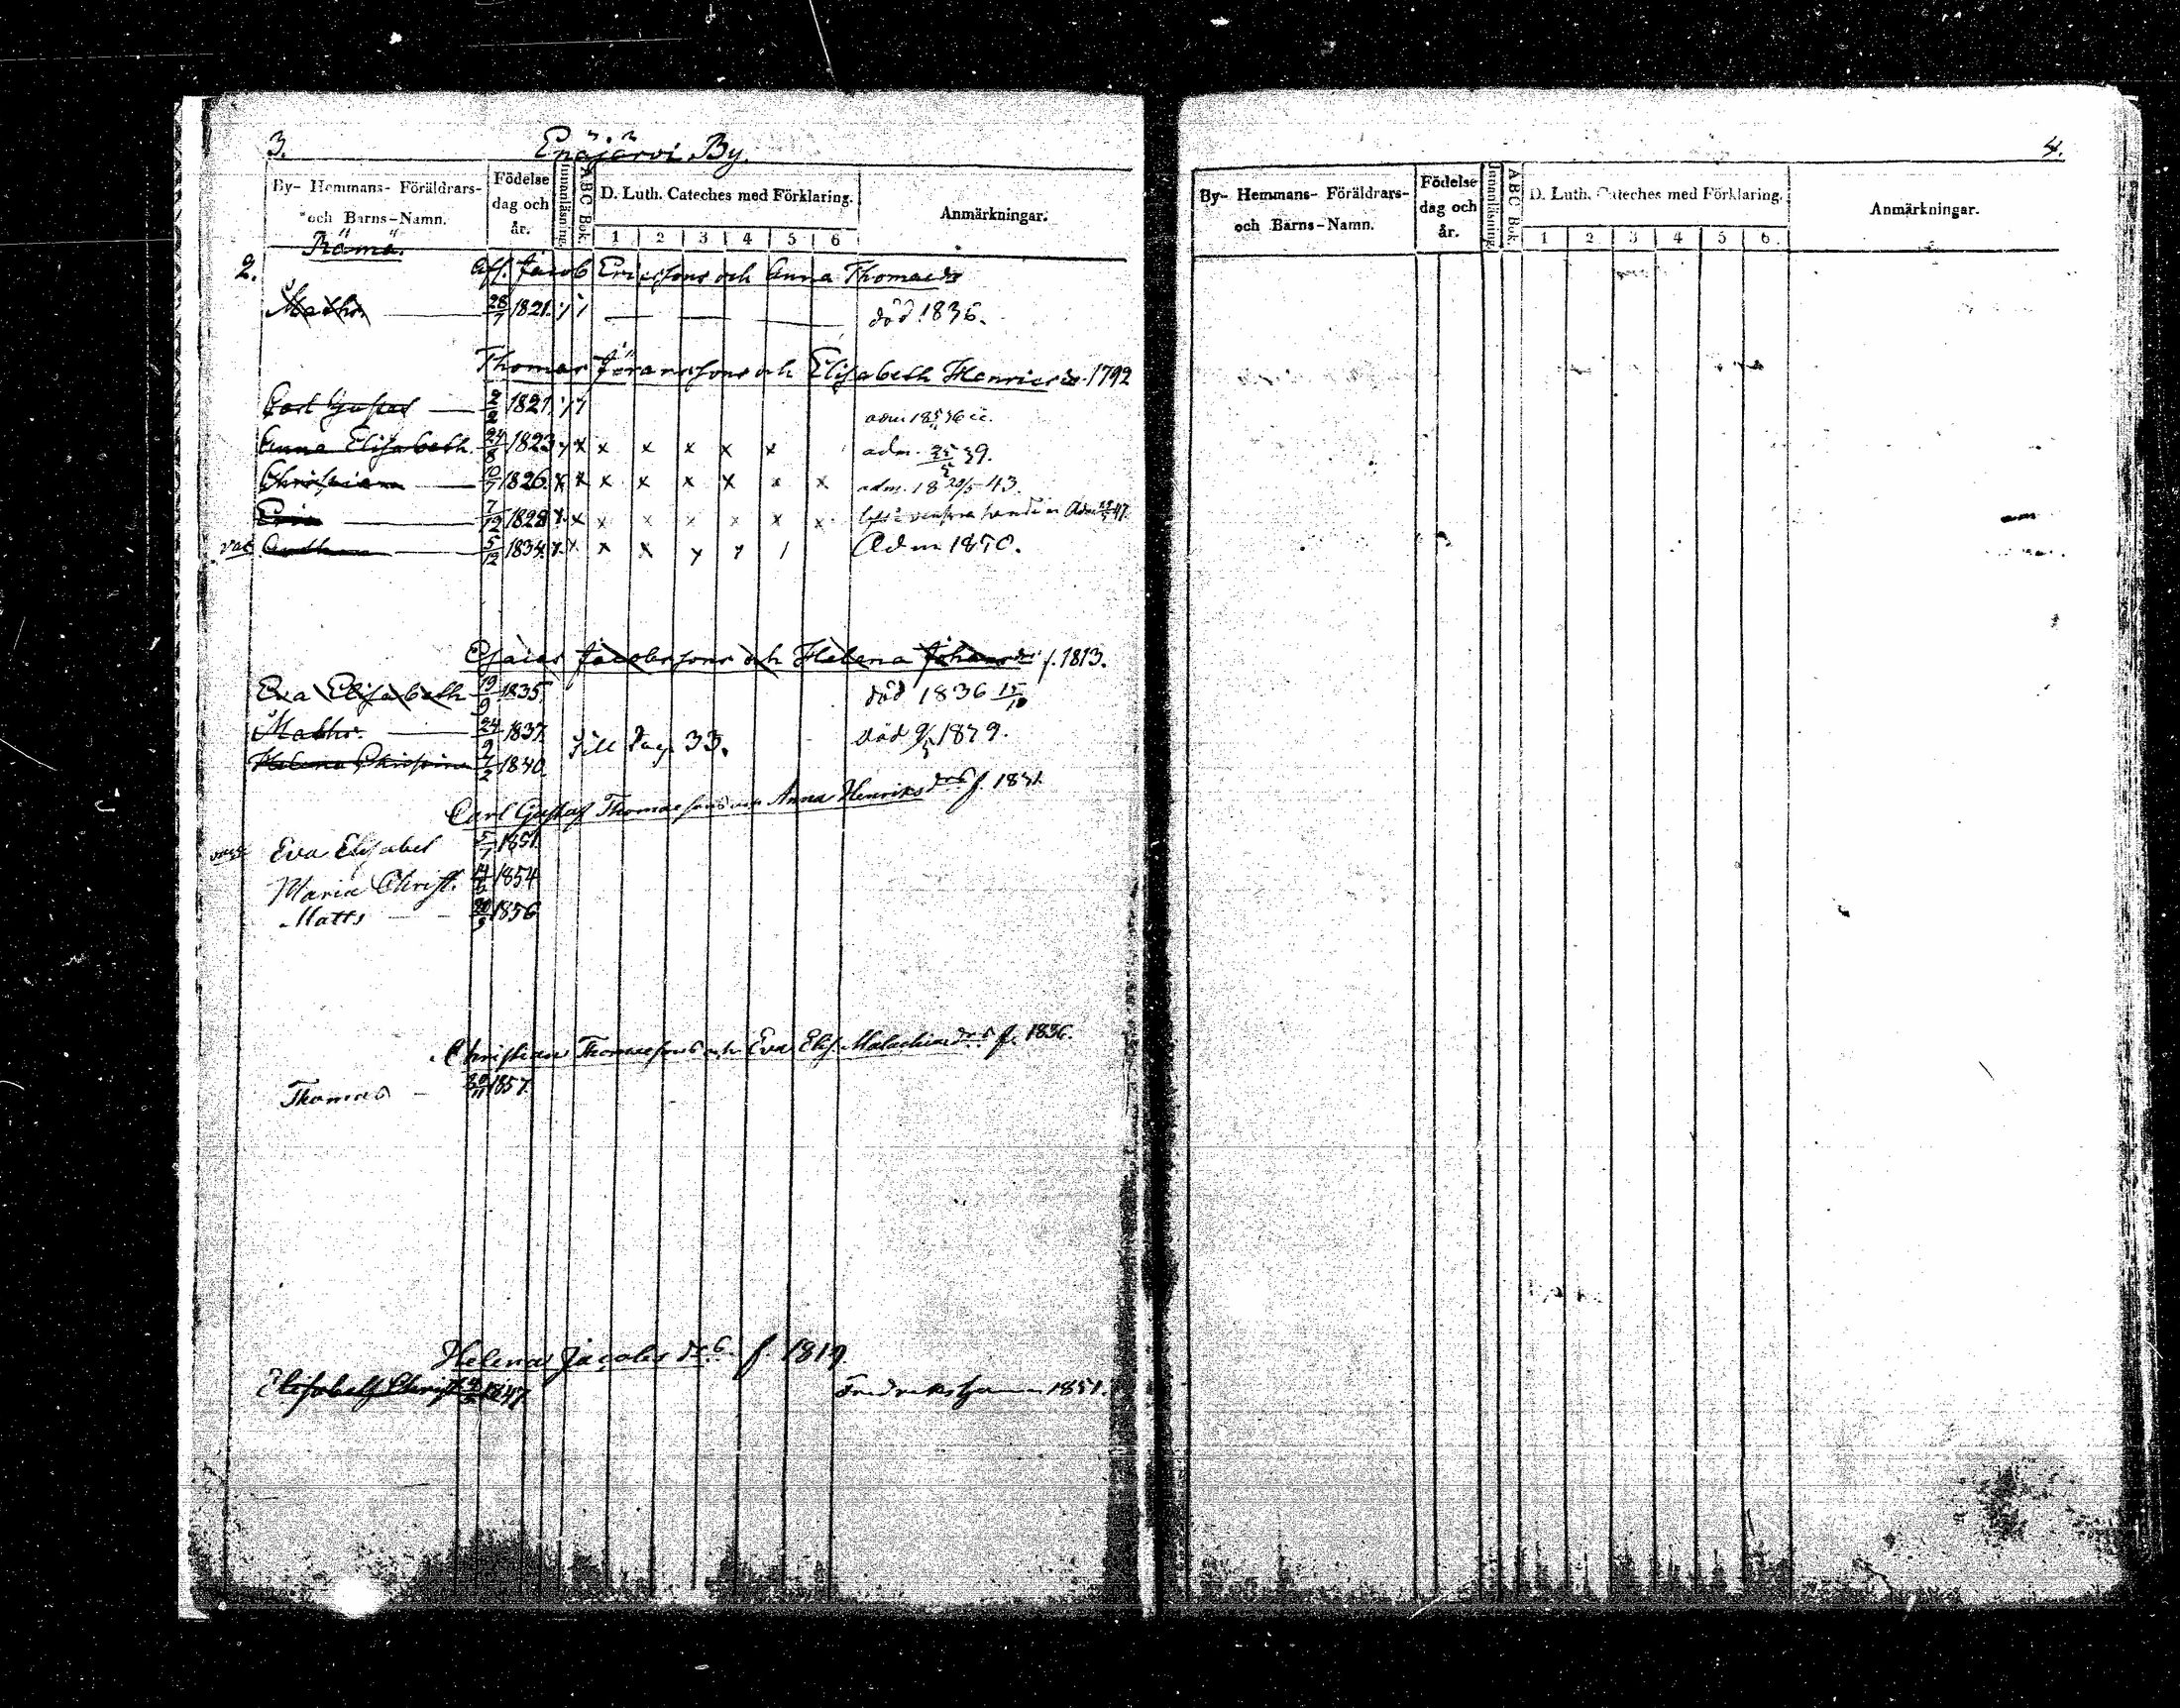 3.
Enäjärvi By.
By- Hemmans- Föräldrars- och Barns-Namn.
Födelse dag och år.
Innanläsning.
A B C Bok.
D. Luth. Cateches med Förklaring.
Anmärkningar.
1 2 3 4 5 6
2.
Aff. Jacob Ericssons och Anna Thomaedr
Maths. 28/7 1821. död 1836.
Thomas Göranssons och Elisabeth Henricsdr 1792
Carl Gustaf 2/2 1821.
Anna Elisabeth. 24/8 1823 x x x x x x adm. 39.
Christian 10/7 1826. x x x x x x x x adm. 18 20/5 43.
7/12 1828 x x x x x x x x
5/12 1834. x x x x y y / Adm 1850.
Esaias Jacobssons och Helena Johansdr f. 1813.
Eva Elisabeth 19/9 1835. död 1836
Maths. 24/9 1837. död 1839.
Helena Christina 4/2 1840. Till Pag. 33.
Carl Gustaf Thomaesons och Anna Henriksdrs f. 1831.
Eva Elisabet 5/7 1851.
Maria Christ. 1854
Matts 1856
Christian Thomaesons och Eva Elis. Malachiaedrs f. 1836.
Thomas 1857.
Helenas Jacobsdrs f. 1819.
Elisabeth Christ. 1847 Fredrikshamn 1851.
4.
By- Hemmans- Föräldrars- och Barns-Namn.
Födelse dag och år.
Innanläsning.
A B C Bok.
D. Luth. Cateches med Förklaring.
Anmärkningar.
1 2 3 4 5 6.